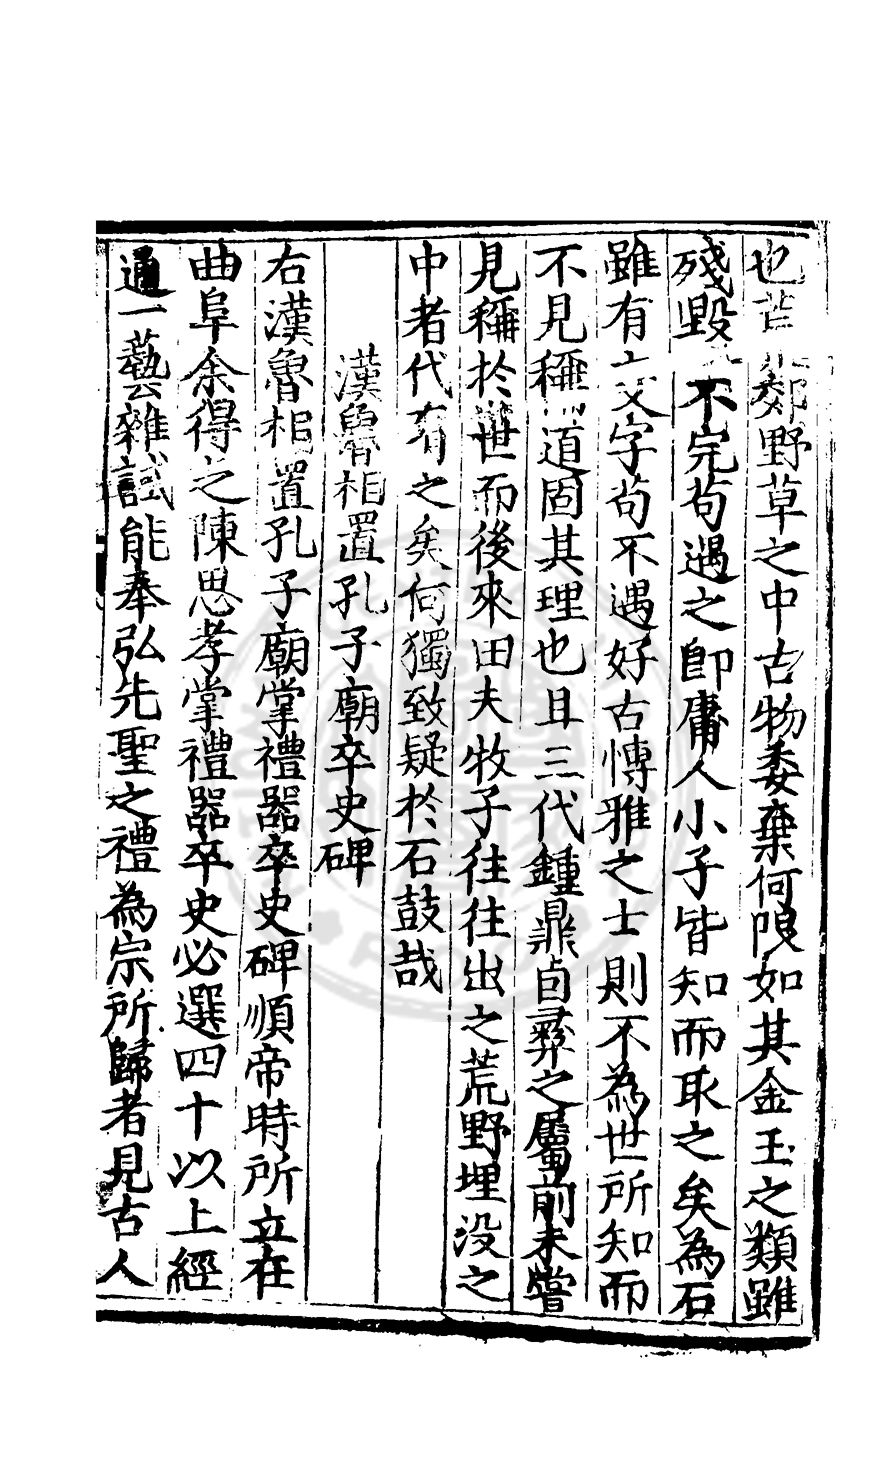 也荒郊野草之中古物委棄何限如其金玉之類雖
殘毀不完苟遇之即庸人小子皆知而取之矣為石
雖有文字苟不遇好古博雅之士則不為世所知而
不見稱道固其理也且三代鍾鼎卣彛之屬前未嘗
見稱於世而後來田夫牧子往往出之荒野埋没之
中者代有之矣何獨致疑於石鼓哉
漢魯相置孔子廟卒史碑
右漢魯相置孔子廟掌禮器卒史碑順帝時所立在
曲阜余得之陳思孝掌禮器卒史必選四十以上經
通一藝雜試能奉弘先聖之禮為宗所歸者見古人